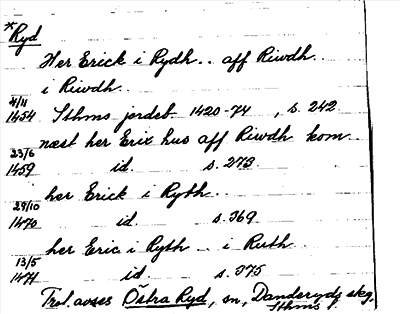 *Ryd
Her Erick i Rydh .. aff Riwdh ..
i Riwdh ..
4/11
1454 Sthms jordeb 1420-74 , s. 242
næst her Erix hus aff Riwdh kom ..
23/6
1459 id. s. 273
her Erick i Rydh ..
29/10
1470 id. s. 369
her Eric i Ryth .. i Ruth ..
13/5
1471 id. s. 375
Trol. avses Östra Ryd, sn, Danderyds skg.
Sthms l.